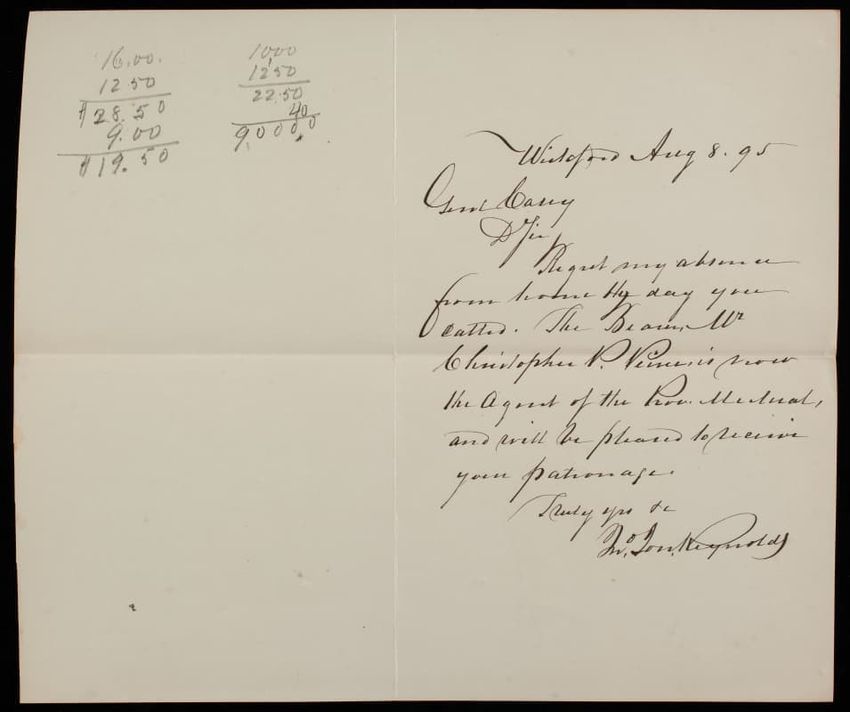 16.00.
12 50
$28.50
9.00
$19.50
1000
1250
22.50
40
90000
Wickford Aug 8. 95
Genl Casey
D Sir
Regret my absence
from home the day you
called. The Bearer, Mr
Christopher P. is now
the Agent of the Prov. Mutual,
and will be pleased to receive
your patronage.
Truly yrs &c
Jno. Jon. Reynolds